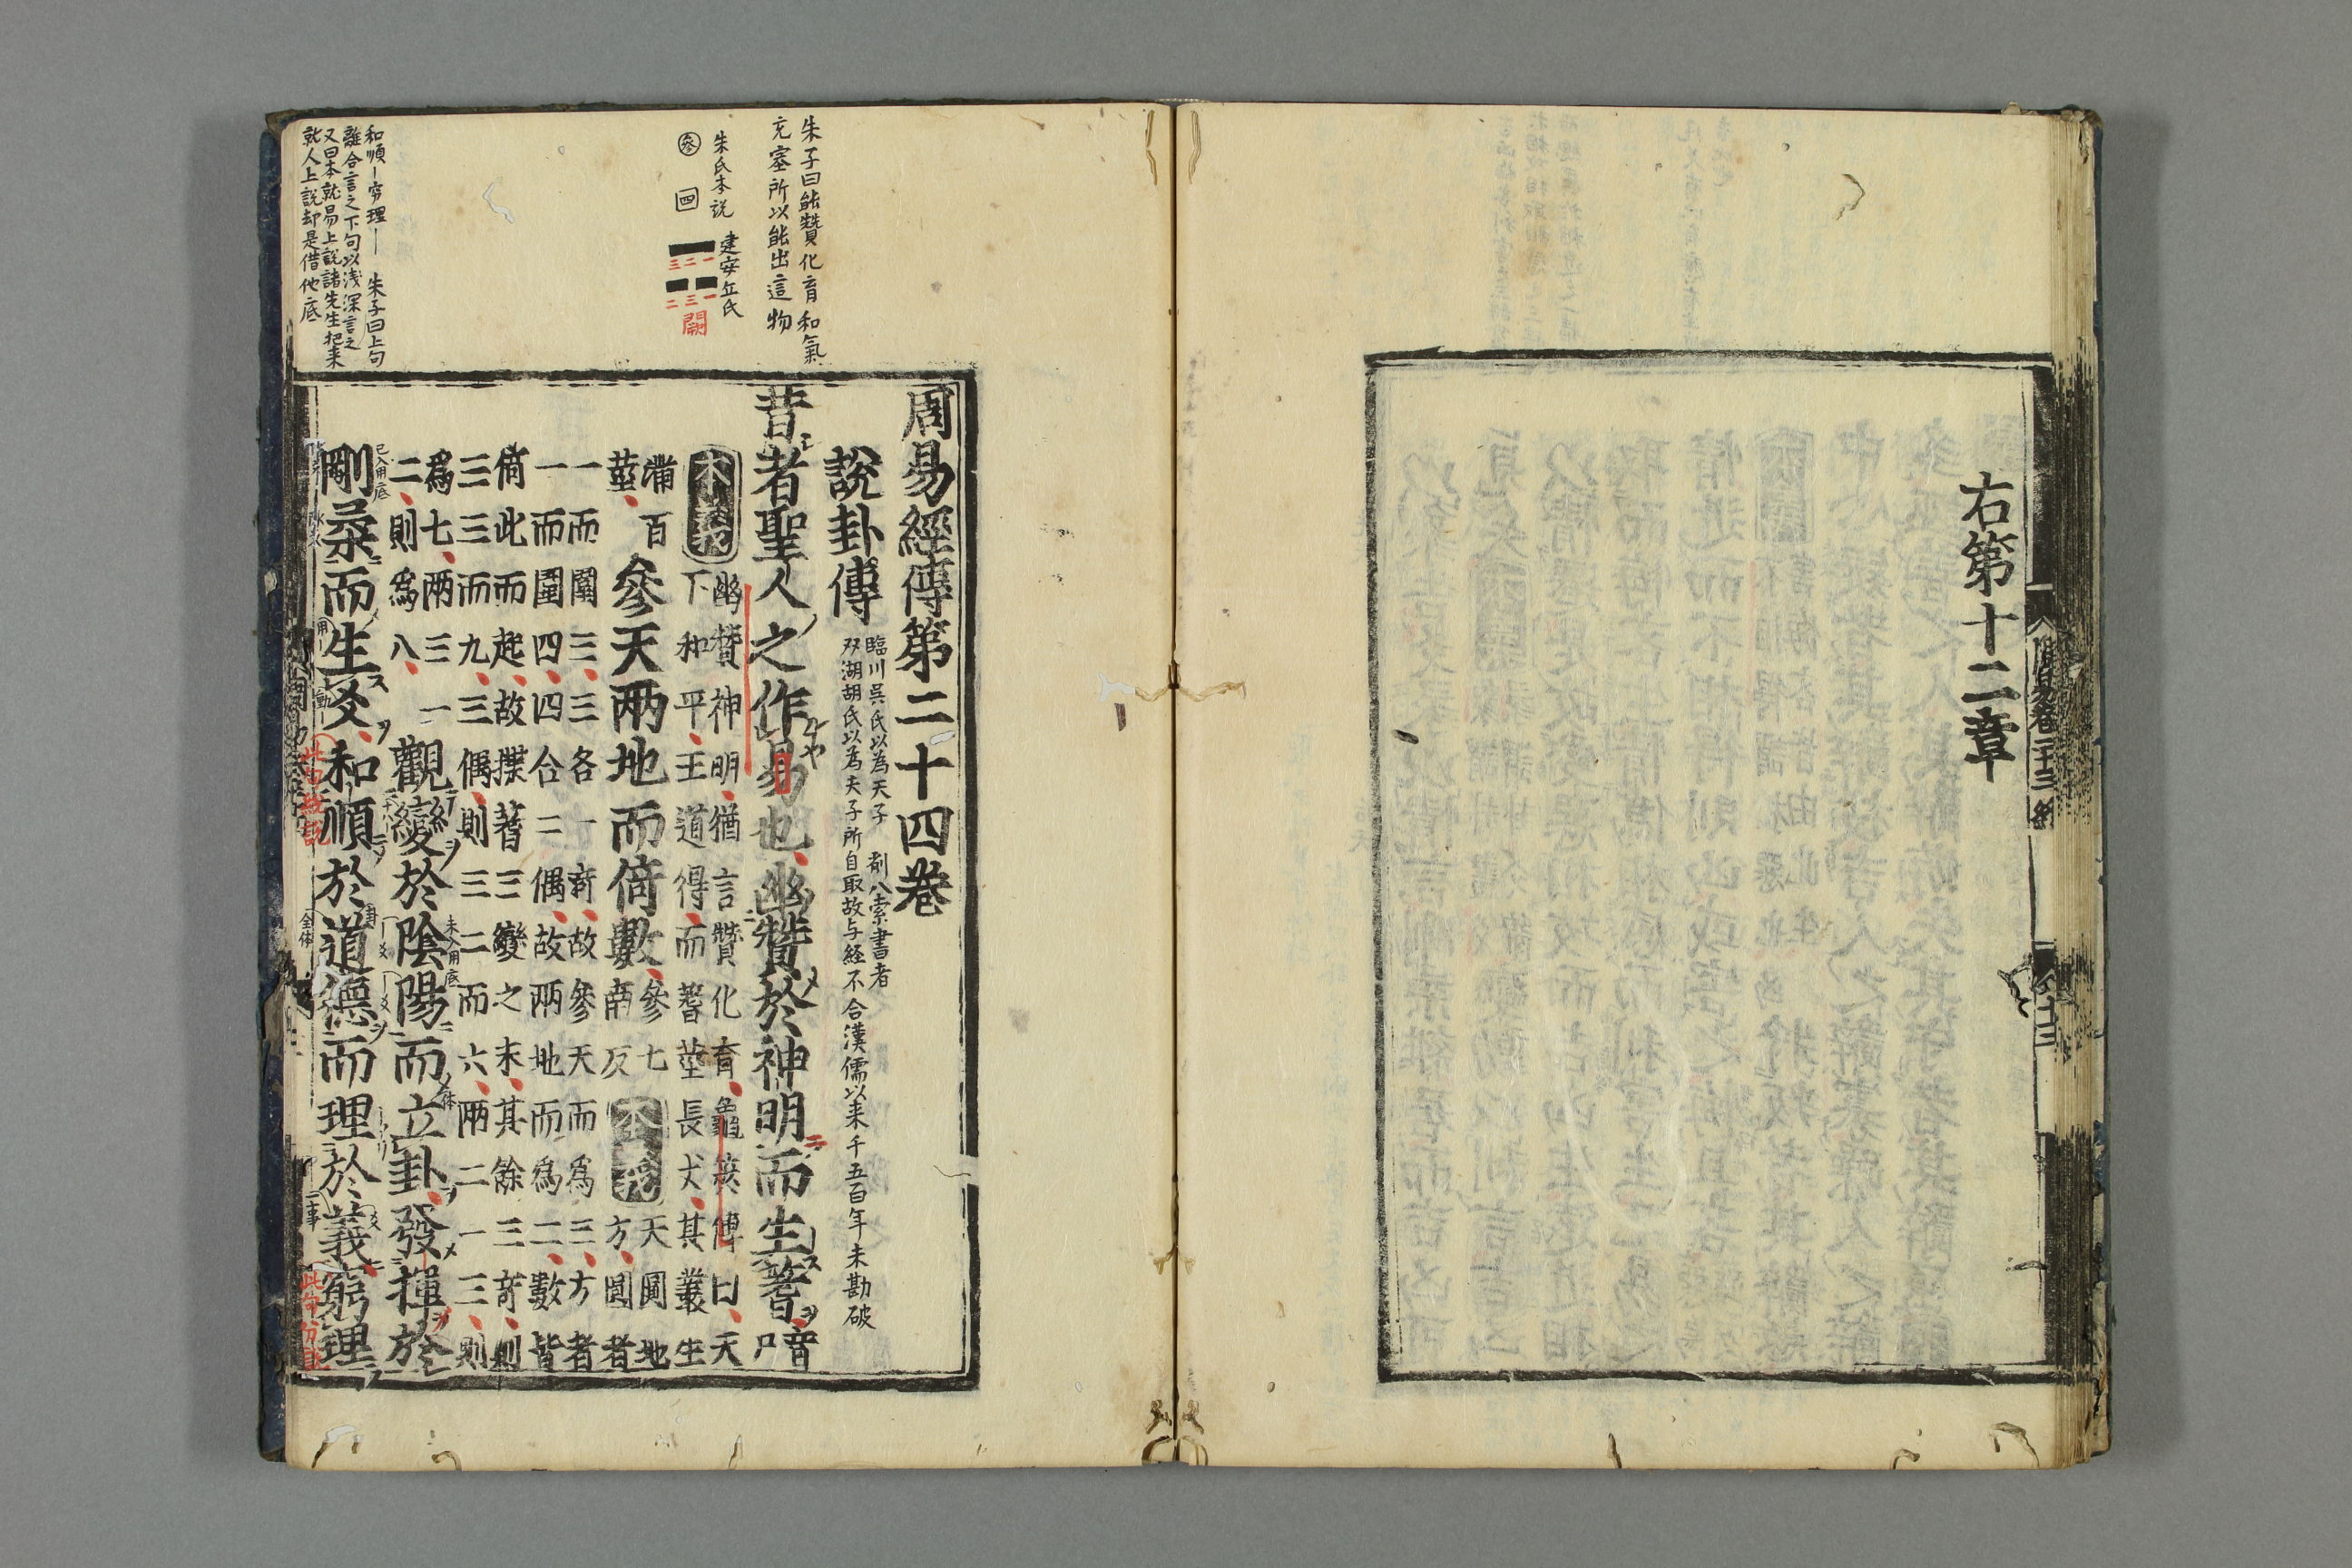 右第十二章
周易經傳第二十四卷
說卦傳
臨川吳氏以為天子
索書者
双湖胡氏以為夫子所自取故与経不合漢儒以来千五百年未勘破
昔者聖人之作易也幽贊於神明而生蓍音
尸
本義
幽贊神明猶言贊化育龜筴傳曰天
下和平王道得而蓍莖長丈其叢生
滿百
莖
參天兩地而倚數參七
南反
本義
天圓地
方圓者
一而圍三三各一奇故參天而爲三方者
一而圍四四合二偶故兩地而爲二數皆
倚此而起故揲蓍三變之末其餘三奇則
三三而九三偶則三二而六兩二一三則
爲七兩三一
二則爲八
觀變於陰陽而立卦發揮於
剛柔而生爻和順於道德而理於義窮理
朱子曰能贊化育和氣
充塞所以能出這物
朱氏本說
建安丘氏
參
四
一二三
一三二
闕
和順｜窮理｜ 朱子曰上句
離合言之下句以浅深言之
又曰本就易上說諸先生把来
就人上說却是借他底
未入用底
已入用底
全体